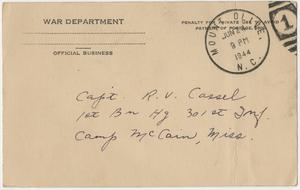 WAR DEPARTMENT
OFFICIAL BUSINESS
PENALTY FOR PRIVATE USE TO AVOID
PAYMENT OF POSTAGE, $300
MOUNT OLIVE,
JUN
9 PM
1944
N.C.
1
Capt. R. V. Cassel
1st Bn Hq 301st Inf.
Camp McCain, Miss.